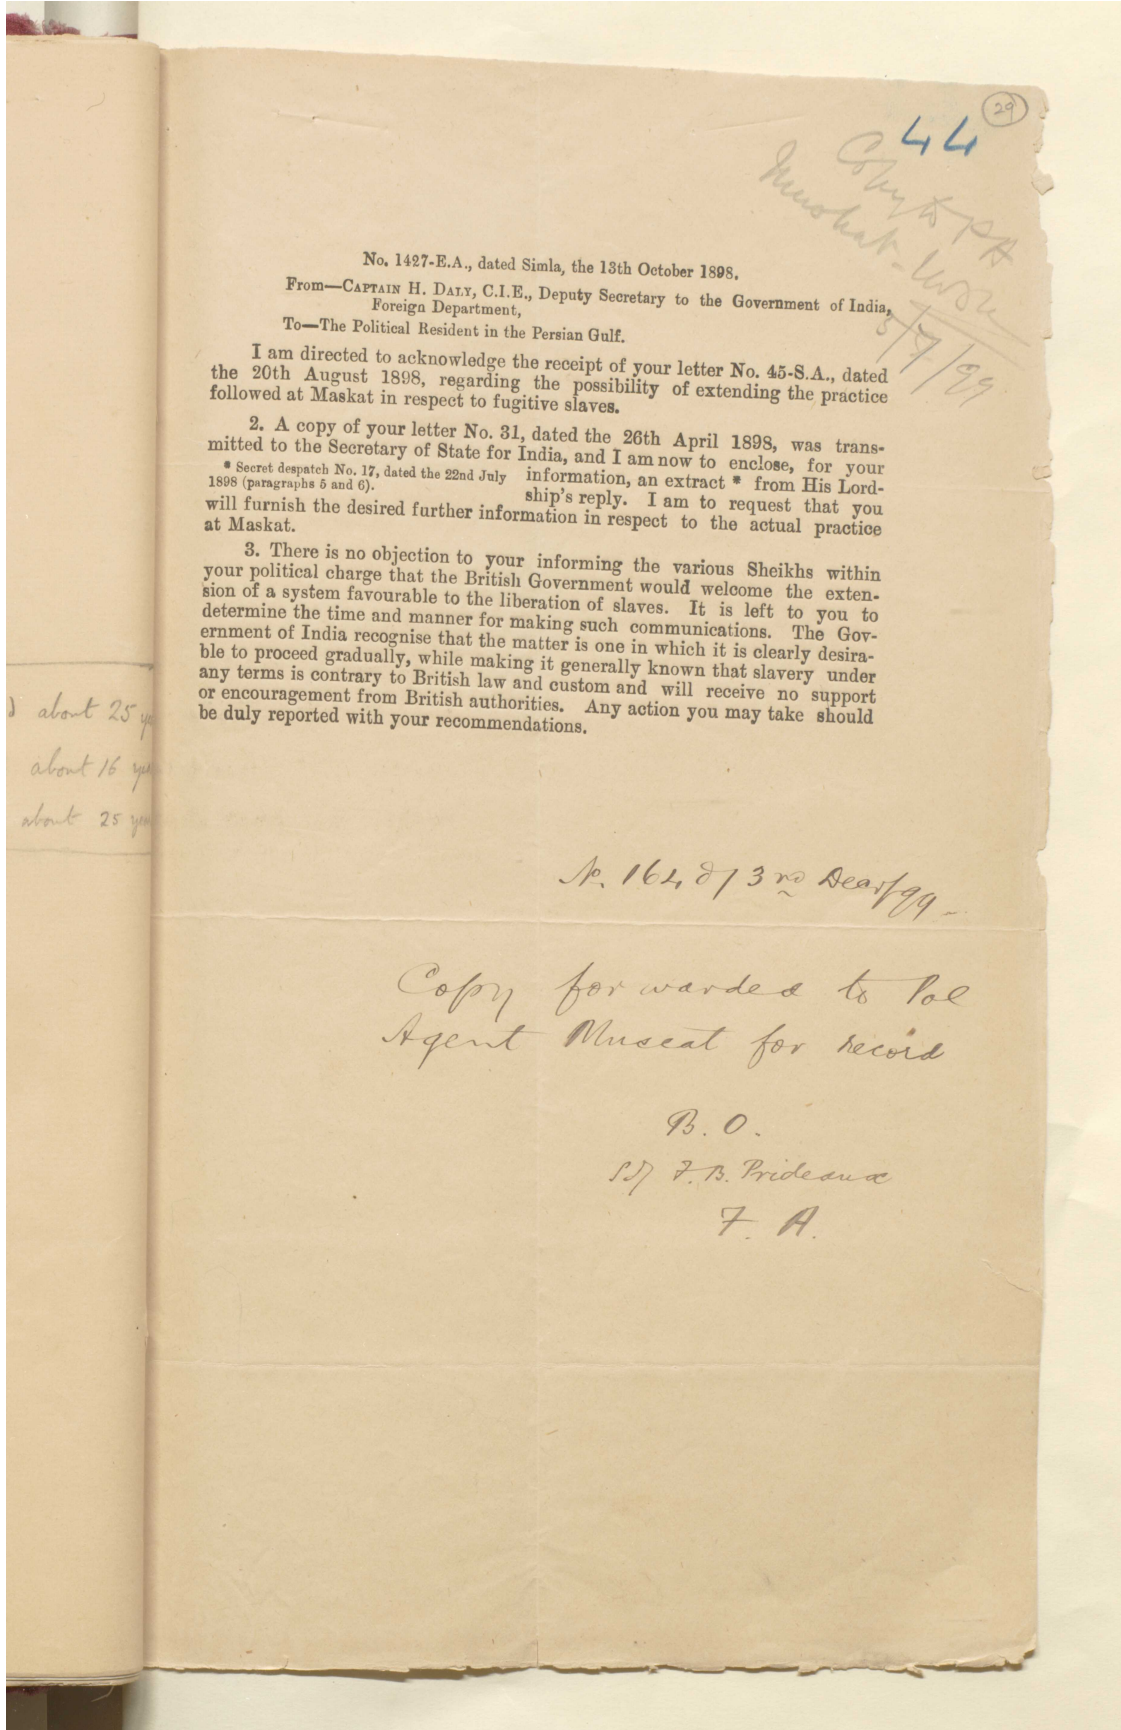 29
44
Copy to PA
Muskat
5/7/99
No. 1427-E.A., dated Simla, the 13th October 1898.
From—CAPTAIN H. DALY, C.I.E., Deputy Secretary to the Government of India,
Foreign Department,
To—The Political Resident in the Persian Gulf.
I am directed to acknowledge the receipt of your letter No. 45-S.A., dated
the 20th August 1898, regarding the possibility of extending the practice
followed at Maskat in respect to fugitive slaves.
2. A copy of your letter No. 31, dated the 26th April 1898, was trans-
mitted to the Secretary of State for India, and I am now to enclose, for your
* Secret despatch No. 17, dated the 22nd July
1898 (paragraphs 5 and 6).
information, an extract * from His Lord-
ship's reply. I am to request that you
will furnish the desired further information in respect to the actual practice
at Maskat.
3. There is no objection to your informing the various Sheikhs within
your political charge that the British Government would welcome the exten-
sion of a system favourable to the liberation of slaves. It is left to you to
determine the time and manner for making such communications. The Gov-
ernment of India recognise that the matter is one in which it is clearly desira-
ble to proceed gradually, while making it generally known that slavery under
any terms is contrary to British law and custom and will receive no support
or encouragement from British authorities. Any action you may take should
be duly reported with your recommendations.
about 25
about 16
about 25
No. 164 of 3rd 99
Copy forwarded to Pol
Agent Muscat for record
B. O.
Sd/ F. B. Prideaux
F. A.